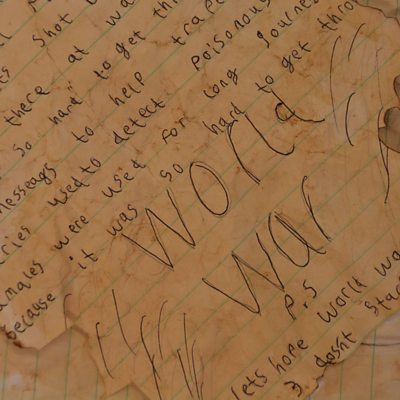 shot
there at wa
so hard to get thi
messeags to help trac
ries used to detect poisonous
amales were used for long journe
because it was so hard to get thro
World
War
P.S
lets hope world wa
3 dosnt star